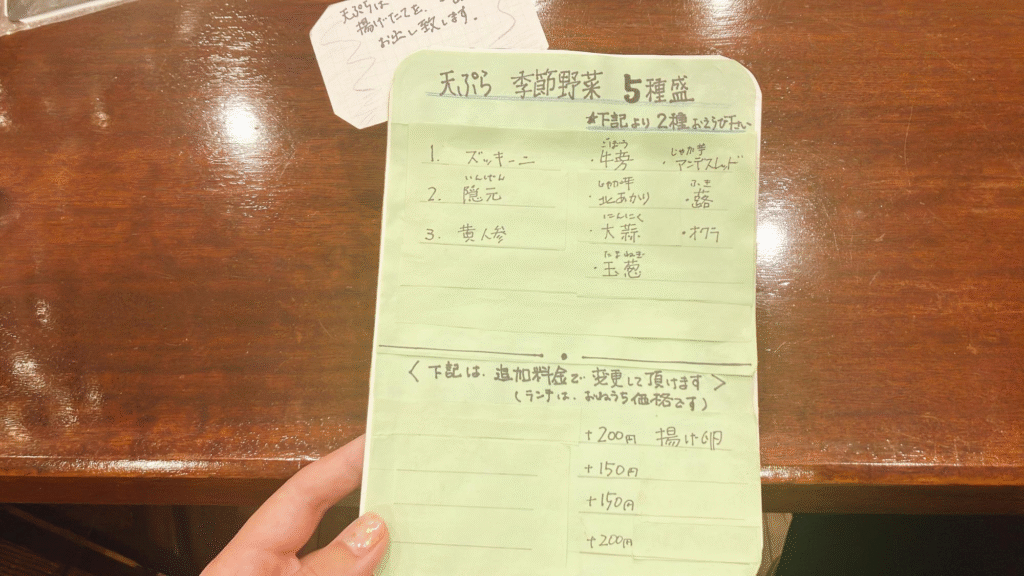 天ぷらは
揚げたてを、
お出し致します.
天ぷら 季節野菜 5種盛
★下記より 2種 おえらび下さい
1. ズッキーニ
いんげん
2. 隠元
3. 黄人参
ごぼう
・牛蒡
じゃが芋
・アンデスレッド
じゃが芋
・北あかり
ふき
・蕗
にんにく
・大蒜
・オクラ
たまねぎ
・玉葱
〈下記は、追加料金で変更して頂けます〉
(ランチは、おねうち価格です)
+200円 揚げ卵
+150円
+150円
+200円